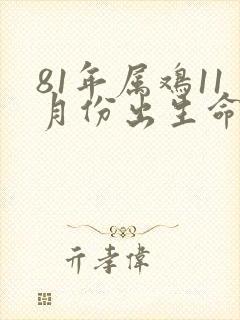 81年属鸡11
月份出生命
亓孝伟